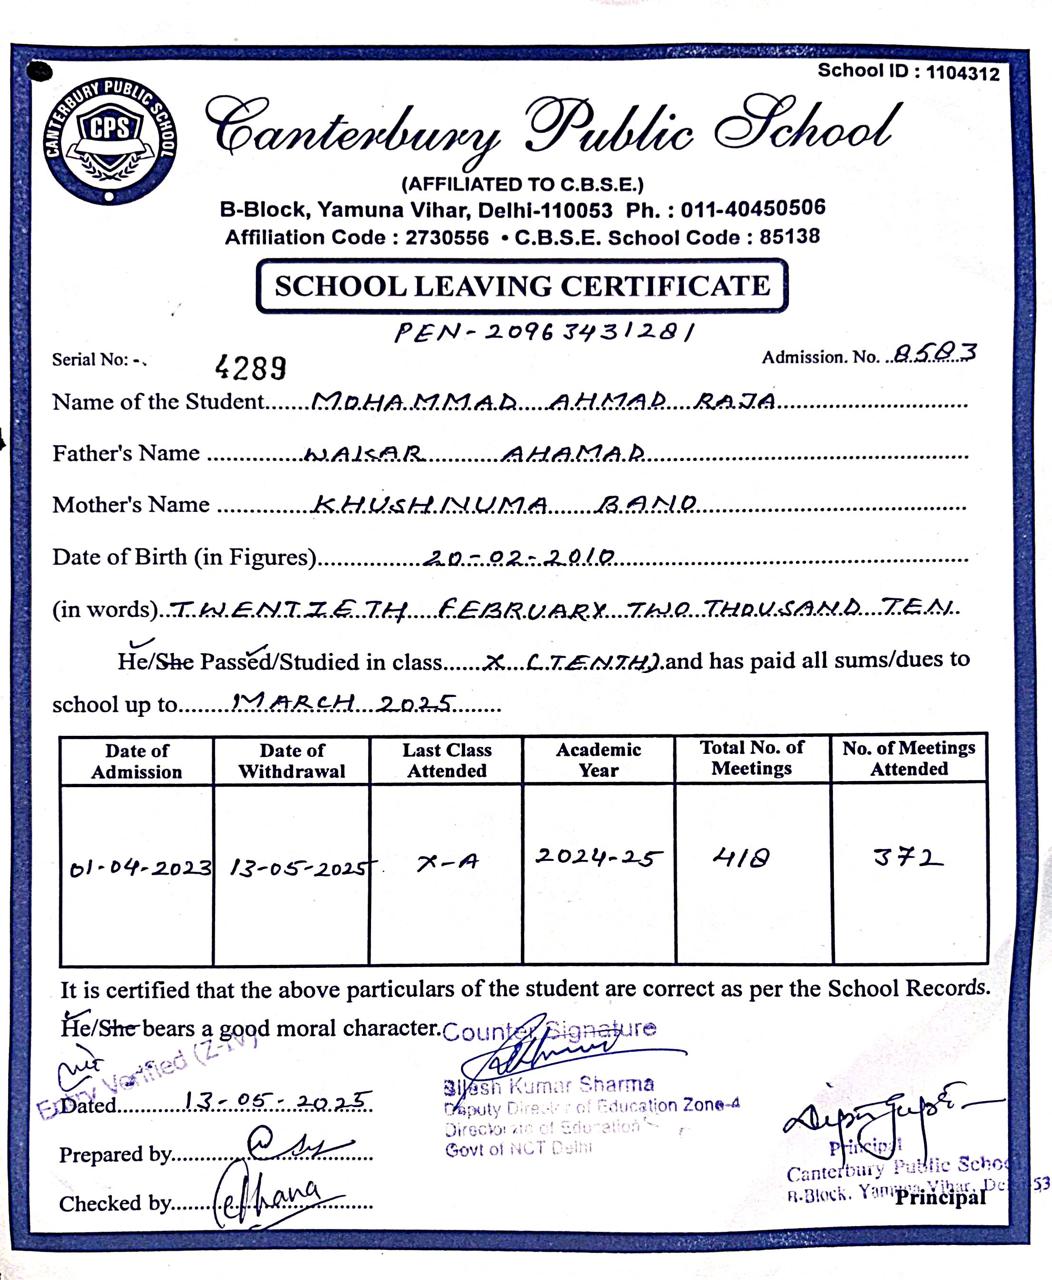 School ID : 1104312
CANTERBURY PUBLIC SCHOOL
CPS
Canterbury Public School
(AFFILIATED TO C.B.S.E.)
B-Block, Yamuna Vihar, Delhi-110053 Ph. : 011-40450506
Affiliation Code : 2730556 • C.B.S.E. School Code : 85138
SCHOOL LEAVING CERTIFICATE
PEN-20963431281
Serial No: -. 4289 Admission. No. 8583
Name of the Student MOHAMMAD AHMAD RAJA
Father's Name WAKAR AHAMAD
Mother's Name KHUSHNUMA BANO
Date of Birth (in Figures) 20-02-2010
(in words) TWENTIETH FEBRUARY TWO THOUSAND TEN
He/She Passed/Studied in class X (TENTH) and has paid all sums/dues to
school up to MARCH 2025
Date of Admission Date of Withdrawal Last Class Attended Academic Year Total No. of Meetings No. of Meetings Attended
01-04-2023 13-05-2025 X-A 2024-25 418 372
It is certified that the above particulars of the student are correct as per the School Records.
He/She bears a good moral character.
Counter Signature
Entry Verified (Z-IV)
Bijesh Kumar Sharma
Deputy Director of Education Zone-4
Directorate of Education
Govt of NCT Delhi
Dated 13-05-2025
Prepared by
Checked by
Principal
Canterbury Public School
B-Block, Yamuna Vihar, Delhi-53
Principal